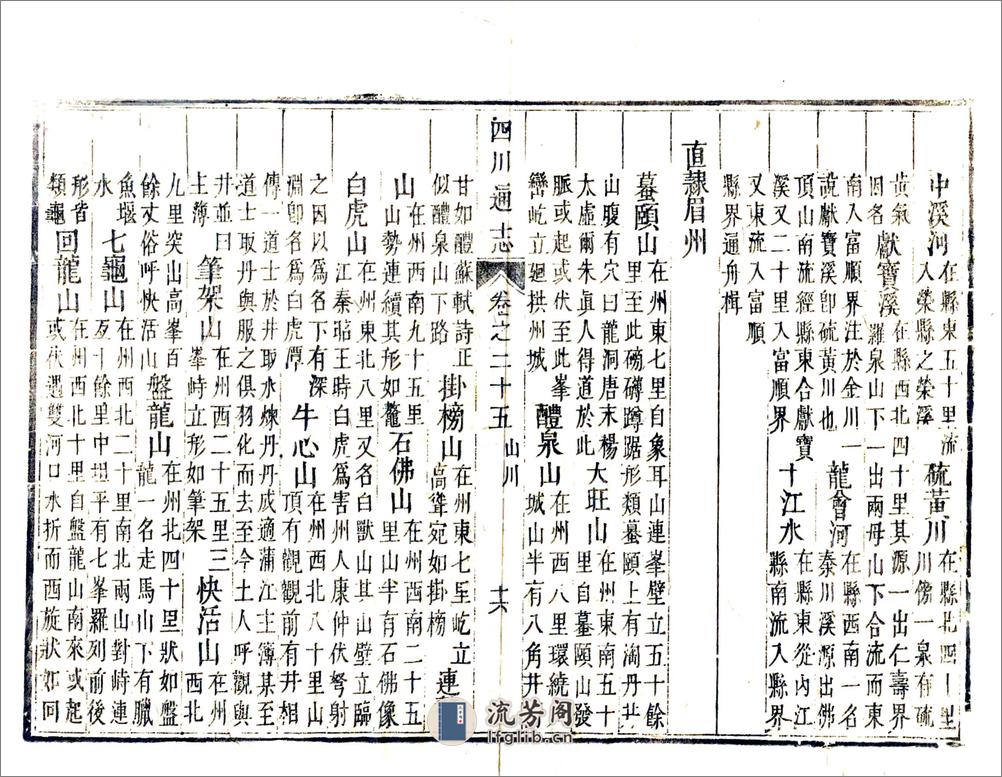 中溪河 在縣東五十里流
入榮縣之榮溪
硫黃川 在縣北四十里
川傍一泉有硫
黃氣
因名
獻寶溪 在縣西北四十里其源一出仁壽界
羅泉山下一出兩母山下合流而東
南入富順界注於金川一
說獻寶溪即硫黃川也
龍會河 在縣西南一名
泰川溪源出佛
頂山南流經縣東合獻寶
溪又二十里南入富順界
十江水 在縣東從內江
縣南流入縣界
又東流入富順
縣界通舟楫
直隸眉州
蟇頤山 在州東七里自象耳山連峯壁立五十餘
里至此磅礡蹲踞形類蟇頤上有淘丹井
山腹有穴曰龍洞唐末楊
太虛爾朱眞人得道於此
大旺山 在州東南五十
里自蟇頤山發
脈或起或伏至此峯
巒屹立廻拱州城
醴泉山 在州西八里環繞
城山半有八角井
四川通志 卷之二十五 山川 十六
甘如醴蘇軾詩正
似醴泉山下路
掛榜山 在州東七里屹立
高聳宛如掛榜
連
山 在州西南九十五里
山勢連續其形如鼇
石佛山 在州西南二十五
里山半有石佛像
白虎山 在州東北八里又名白獸山其山壁立臨
江秦昭王時白虎爲害州人康仲伏弩射
之因以爲名下有深
淵卽名爲白虎潭
牛心山 在州西北八十里山
頂有觀觀前有井相
傳一道士於井取水煉丹丹成適蒲江主簿某至
道士取丹與服之俱羽化而去至今土人呼觀與
井並曰
主簿
筆架山 在州西二十五里三
峯峙立形如筆架
快活山 西北
九里突出高峯百
餘丈俗呼快活山
盤龍山 在州北四十里狀如盤
龍一名走馬山下有臘
魚堰
水
七龜山 在州西北二十里南北兩山對峙連
亙十餘里中坦平有七峯羅列前後
形省
類龜
回龍山 在州西北十里自盤龍山南來或起
或伏遇雙河口水折而西旋狀如回
流芳阁
lfglib.cn